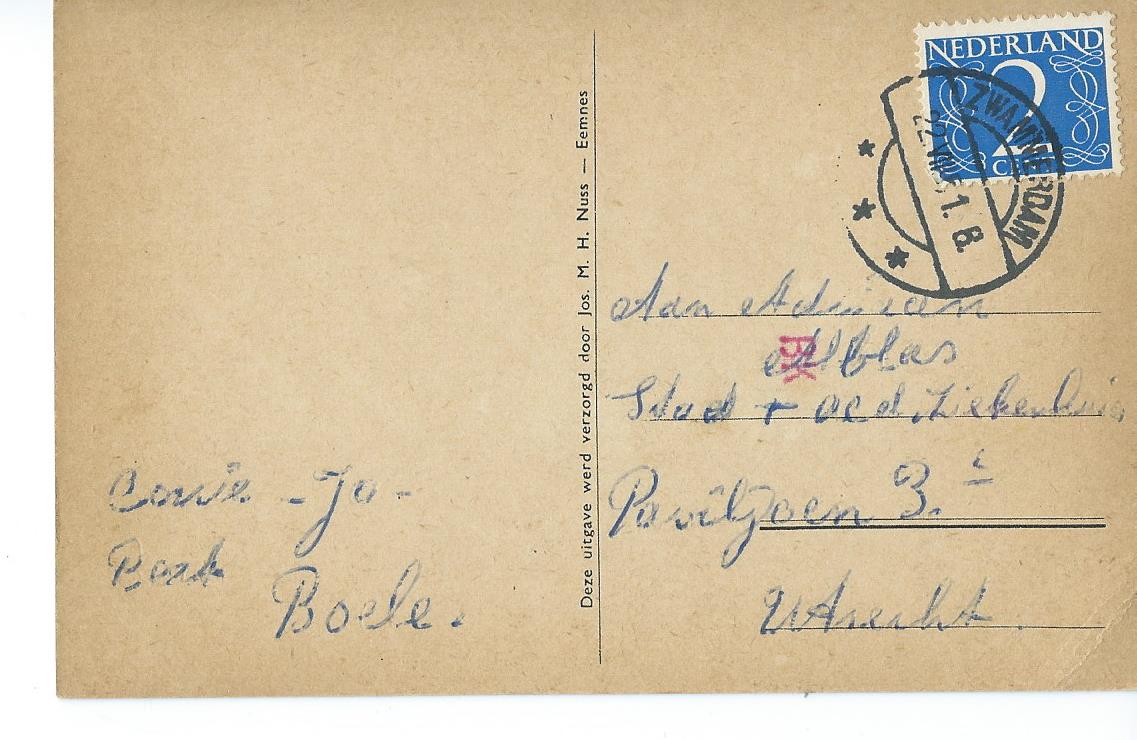 Corrie - Jo -
Boele.
Deze uitgave werd verzorgd door Jos. M. H. Nuss — Eemnes
NEDERLAND
2
ZWAMMERDAM
22 VII 5 1. 8.
Aan Adriaan
Alblas
BK
Stad + Acd. Ziekenhuis
Paviljoen 3.
Utrecht.